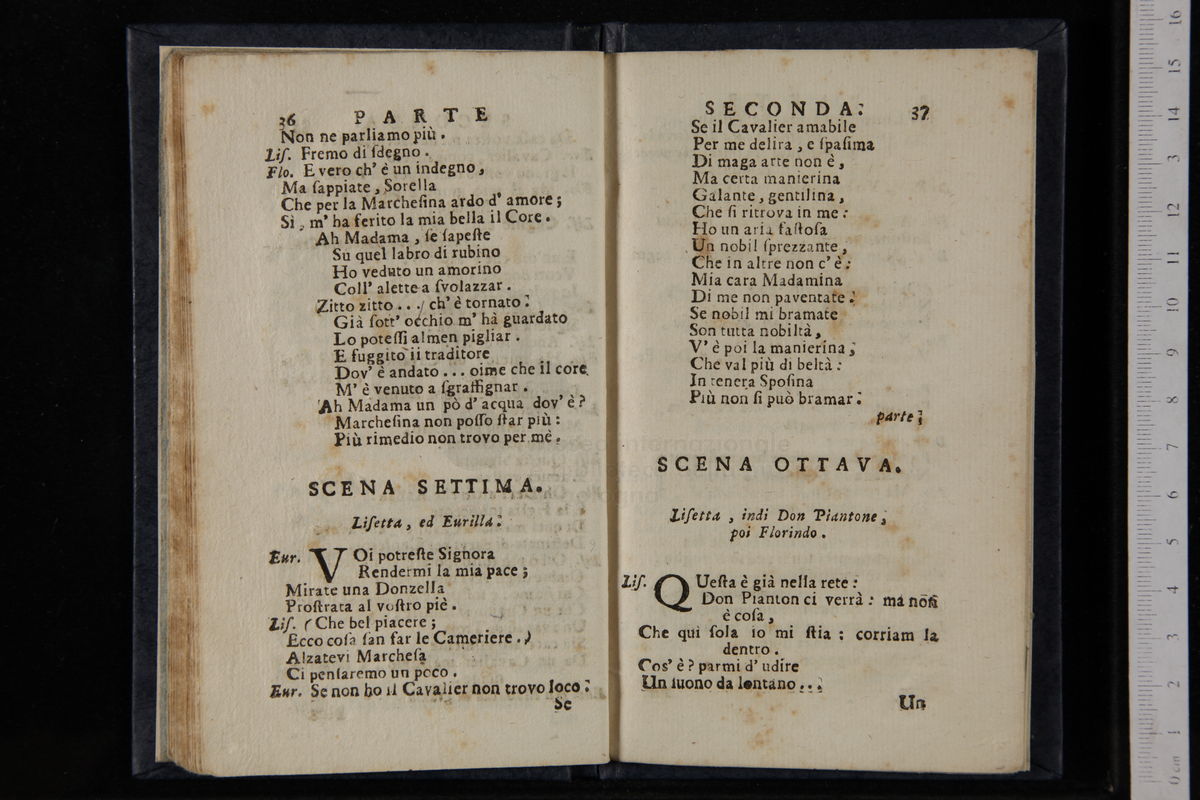 36 PARTE
Non ne parliamo più.
Liſ. Fremo di ſdegno.
Flo. E vero ch' è un indegno,
Ma ſappiate, Sorella
Che per la Marcheſina ardo d' amore;
Sì, m' ha ferito la mia bella il Core.
Ah Madama, ſe ſapeſte
Su quel labro di rubino
Ho veduto un amorino
Coll' alette a ſvolazzar.
Zitto zitto . . . ch' è tornato:
Già ſott' occhio m' hà guardato
Lo poteſſi almen pigliar.
E fuggito ii traditore
Dov' è andato . . . oime che il core
M' è venuto a ſgraffignar.
Ah Madama un pò d' acqua dov' è?
Marcheſina non poſſo ſtar più:
Più rimedio non trovo per mè.
SCENA SETTIMA.
Liſetta, ed Eurilla:
Eur. VOi potreſte Signora
Rendermi la mia pace;
Mirate una Donzella
Proſtrata al voſtro piè.
Liſ. (Che bel piacere;
Ecco coſa ſan far le Cameriere.)
Alzatevi Marcheſa
Ci penſaremo un poco.
Eur. Se non ho il Cavalier non trovo loco:
Se
SECONDA: 37
Se il Cavalier amabile
Per me delira, e ſpaſima
Di maga arte non è,
Ma certa manierina
Galante, gentilina,
Che ſi ritrova in me:
Ho un aria faſtoſa
Un nobil ſprezzante,
Che in altre non c' è:
Mia cara Madamina
Di me non paventate:
Se nobil mi bramate
Son tutta nobiltà,
V' è poi la manierina;
Che val più di beltà:
In tenera Spoſina
Più non ſi può bramar:
parte;
SCENA OTTAVA.
Liſetta, indi Don Piantone;
poi Florindo.
Liſ. QUeſta è già nella rete:
Don Pianton ci verrà: ma non
è coſa,
Che qui ſola io mi ſtia: corriam la
dentro.
Cos' è? parmi d' udire
Un ſuono da lontano...;
Un
0 cm 1 2 3 4 5 6 7 8 9 10 11 12 13 14 15 16